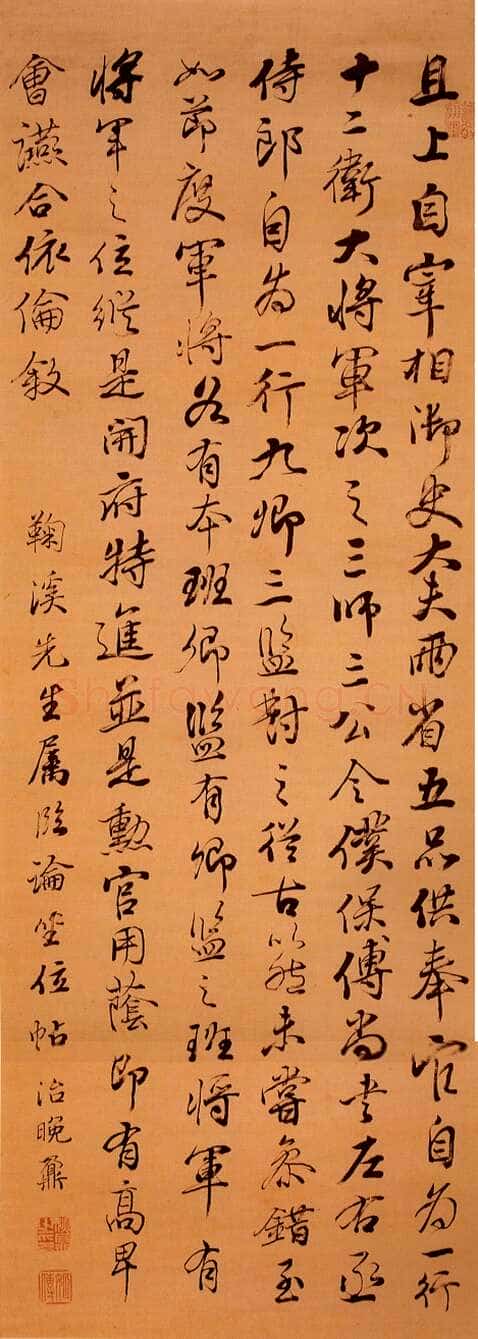 且上自宰相御史大夫兩省五品供奉官自為一行
十二衛大將軍次之三師三公令僕保傅尚書左右丞
侍郎自為一行九卿三監對之從古以然未嘗參錯至
如節度軍將各有本班卿監有卿監之班將軍有
將軍之位縱是開府特進並是勳官用蔭即有高卑
會讌合依倫敘
鞠溪先生屬臨論坐位帖 治晚鼐
Shufawang.CN